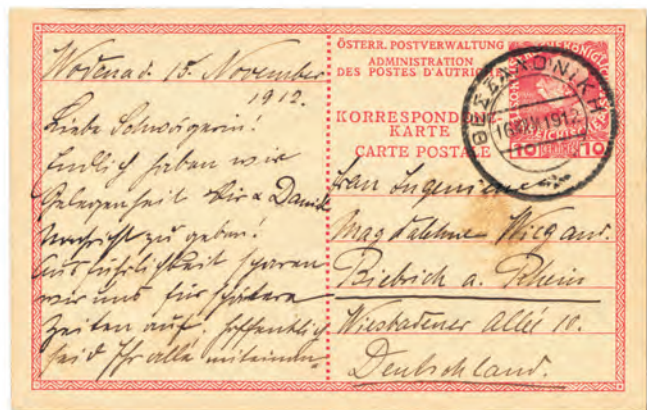 Wodena d. 15. November
1912.
Liebe Schwägerin!
Endlich haben wir
Gelegenheit Dir &
Nachricht zu geben!
Ausführlichkeit sparen
wir uns für spätere
Zeiten auf. Hoffentlich
seid Ihr alle miteinan-
ÖSTERR. POSTVERWALTUNG
ADMINISTRATION
DES POSTES D'AUTRICHE
KORRESPONDENZ-
KARTE
CARTE POSTALE
10 10
ΘΕΣΣΑΛΟΝΙΚΗ
1912
Frau Ingenieur
Magdalene Wiegand.
Biebrich a. Rhein
Wiesbadener Allée 10.
Deutschland.